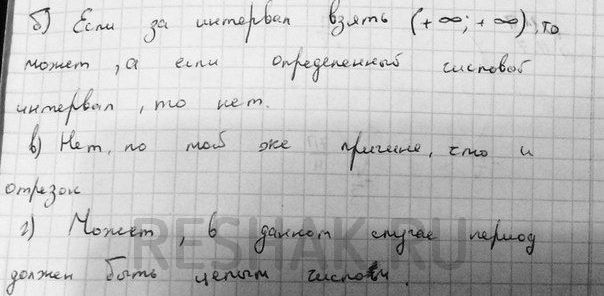 б) Если за интервал взять (+∞; +∞), то
может, а если определенный числовой
интервал, то нет.
в) Нет, по той же причине, что и
отрезок
г) Может, в данном случае период
должен быть целым числом.
RESHAK.RU